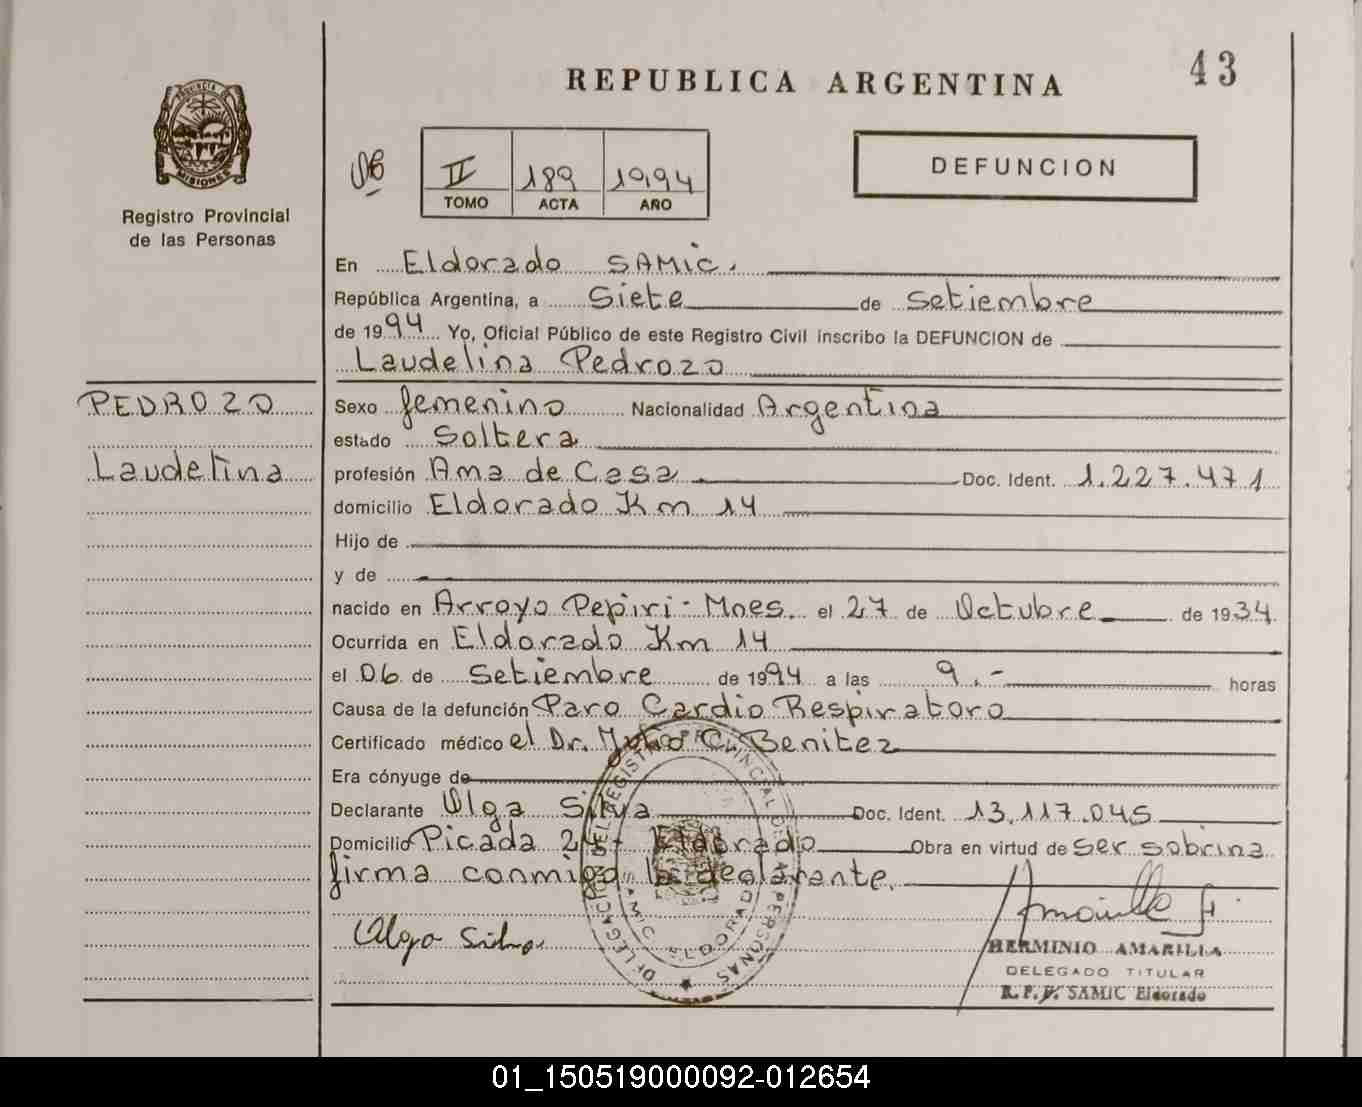 43
REPUBLICA ARGENTINA
PROVINCIA DE
MISIONES
Registro Provincial
de las Personas
II 189 1994
TOMO ACTA AÑO
DEFUNCION
En Eldorado SAMic.
República Argentina, a Siete de Setiembre
de 1994 Yo, Oficial Público de este Registro Civil inscribo la DEFUNCION de
Laudelina Pedrozo
PEDROZO
Laudelina
Sexo femenino Nacionalidad Argentina
estado Soltera
profesión Ama de Casa Doc. Ident. 1.227.471
domicilio Eldorado Km 14
Hijo de
y de
nacido en Arroyo Pepiri-Mnes. el 27 de Octubre de 1934
Ocurrida en Eldorado Km 14
el 06 de Setiembre de 1994 a las 9.- horas
Causa de la defunción Paro Cardio Respiratoro
Certificado médico el Dr. Julio C. Benitez
Era cónyuge de
Declarante Olga Silva Doc. Ident. 13.117.045
Domicilio Picada 24- Eldorado Obra en virtud de ser sobrina
firma conmigo la declarante.
Olga Silva
Amarilla
HERMINIO AMARILLA
DELEGADO TITULAR
R. P. P. SAMIC Eldorado
DELEGACION DEL REGISTRO PROVINCIAL DE LAS PERSONAS
SAMIC ELDORADO
01_150519000092-012654